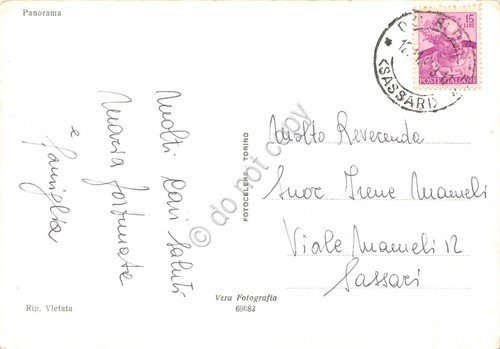 Panorama
Molti Cari Saluti
Maria Fortunata
e famiglia
Rip. Vietata
FOTOCELERE TORINO
Vera Fotografia
69082
15
LIRE
POSTE ITALIANE
(SASSARI)
Molto Reverenda
Suor Irene Mameli
Viale Mameli 12
Sassari
do not copy